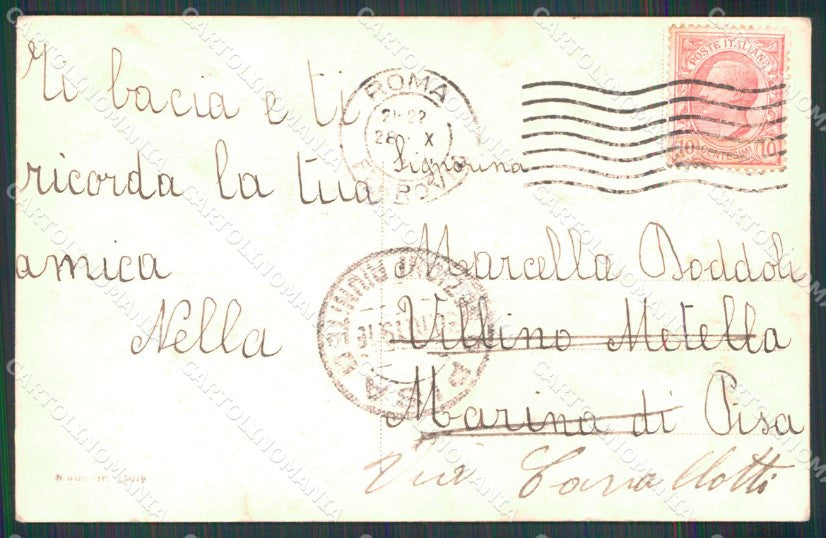 Ti bacia e ti
ricorda la tua
amica
Nella
ROMA
21-22
28 X
POSTE ITALIANE
10 CENTESIMI 10
Signorina
Marcella Doddoli
Villino Metella
Marina di Pisa
Via Cavallotti
PISA
CARTOLINOMANIA